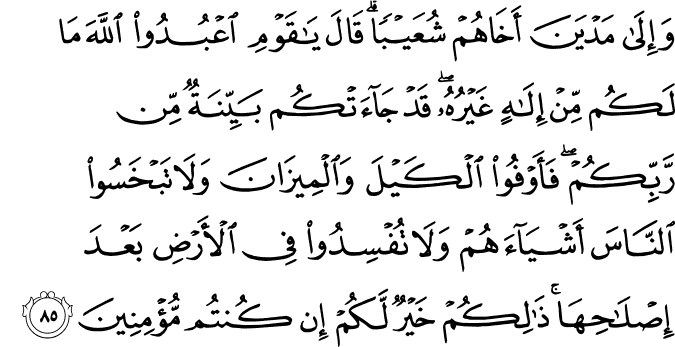 وَإِلَىٰ مَدْيَنَ أَخَاهُمْ شُعَيْبًا ۗ قَالَ يَـٰقَوْمِ ٱعْبُدُوا۟ ٱللَّهَ مَا
لَكُم مِّنْ إِلَـٰهٍ غَيْرُهُۥ ۖ قَدْ جَآءَتْكُم بَيِّنَةٌ مِّن
رَّبِّكُمْ ۖ فَأَوْفُوا۟ ٱلْكَيْلَ وَٱلْمِيزَانَ وَلَا تَبْخَسُوا۟
ٱلنَّاسَ أَشْيَآءَهُمْ وَلَا تُفْسِدُوا۟ فِى ٱلْأَرْضِ بَعْدَ
إِصْلَـٰحِهَا ۚ ذَٰلِكُمْ خَيْرٌ لَّكُمْ إِن كُنتُم مُّؤْمِنِينَ ٨٥